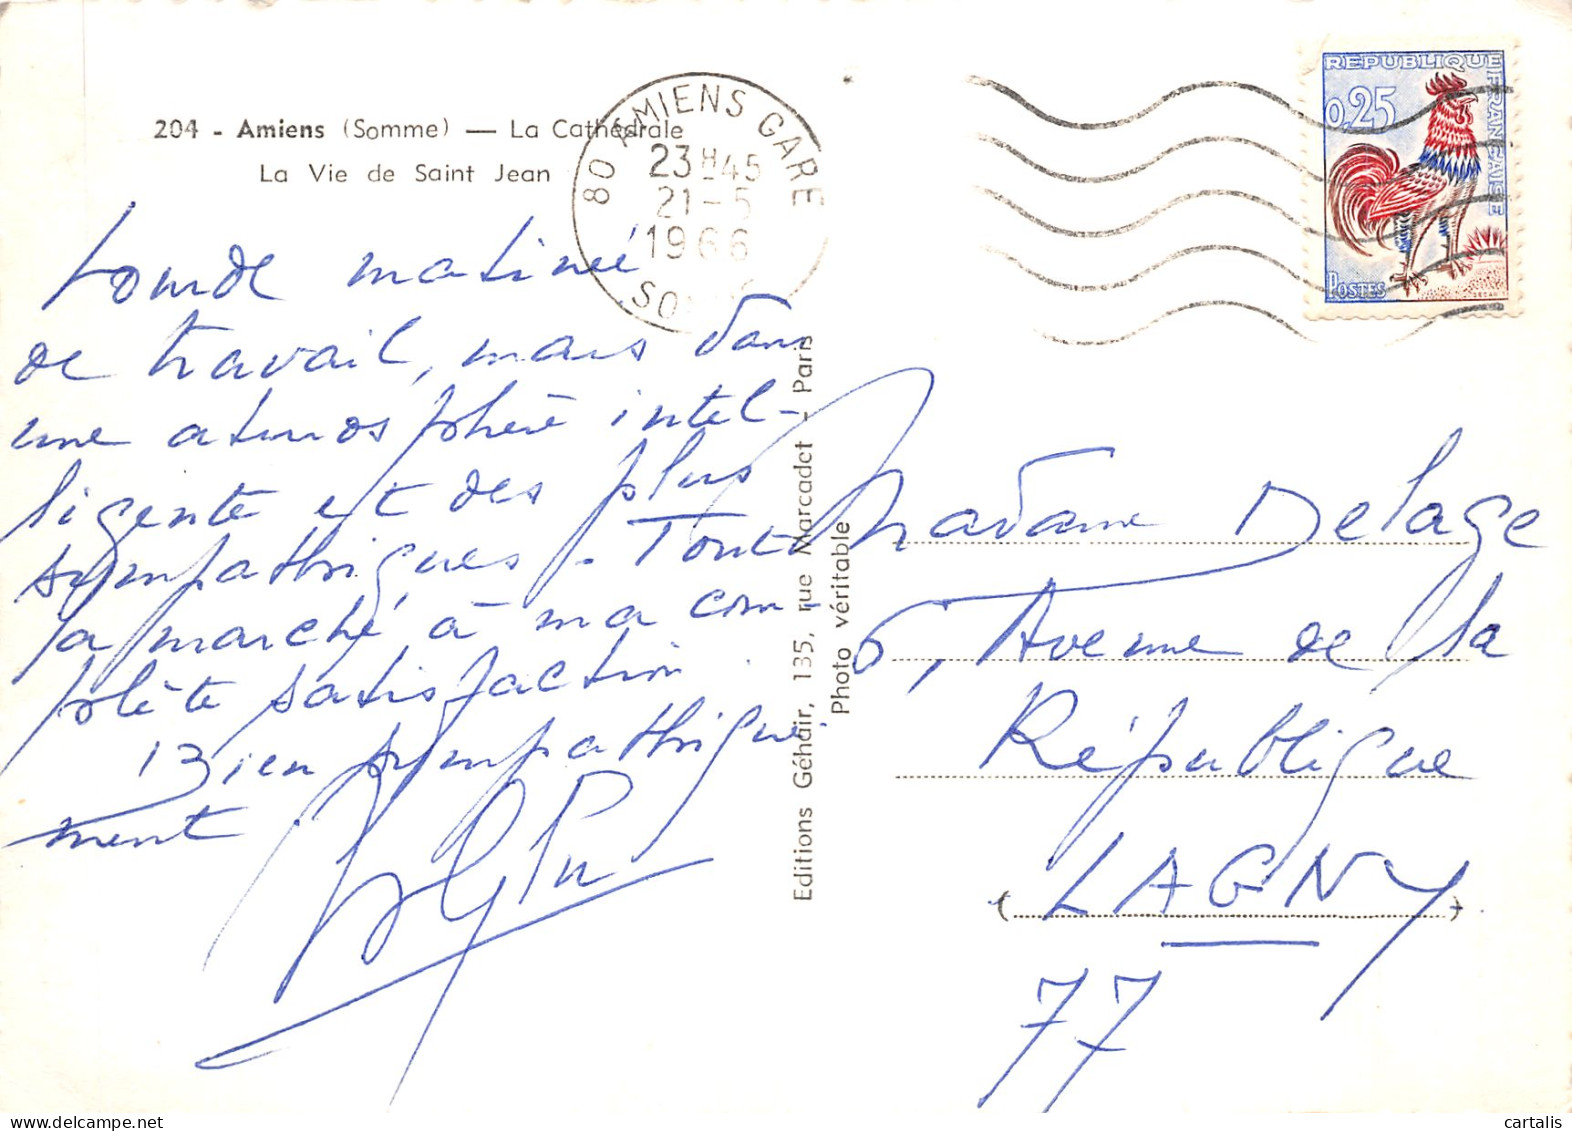 204 - Amiens (Somme) — La Cathédrale
La Vie de Saint Jean
80 AMIENS GARE
23H45
21-5
1966
SO
REPUBLIQUE FRANÇAISE
0,25
POSTES
DECARIS
Lourde matinée
de travail, mais dans
une atmosphère intel-
ligente et des plus
sympathiques. Tout
a marché à ma com-
plète satisfaction.
Bien sympathique
ment
Editions Géhair, 135, rue Marcadet - Paris
Photo véritable
Madame Delage
6, Avenue de la
République
(LAGNY)
77
cartalis